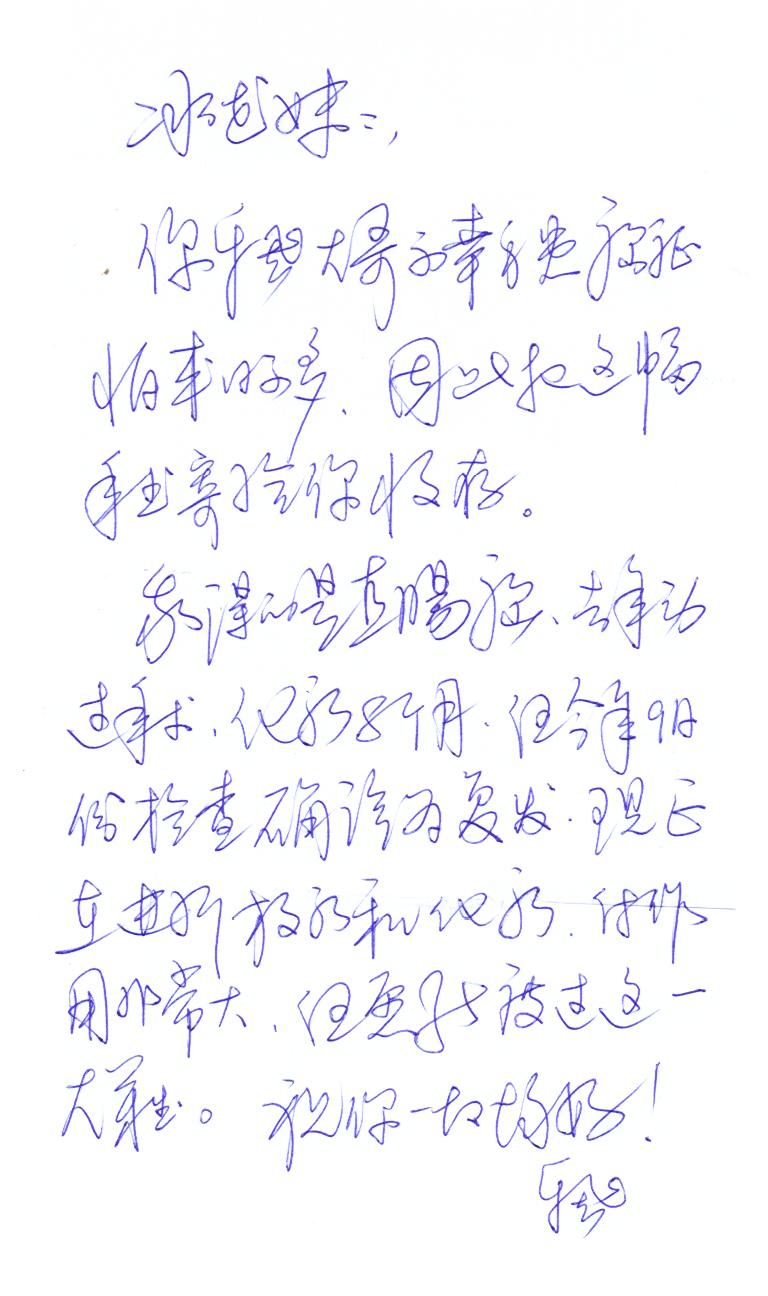 冰 妹:,
你 大哥不幸身患癌症
怕来日不多、因此把这幅
手 寄给你收存。
我得的是直腸癌、去年动
过手术、化疗8个月.但今年9月
份检查确诊为复发.现正
在进行放疗和化疗.付作
用非常大、但愿能度过这一
大难。祝你一切均好!